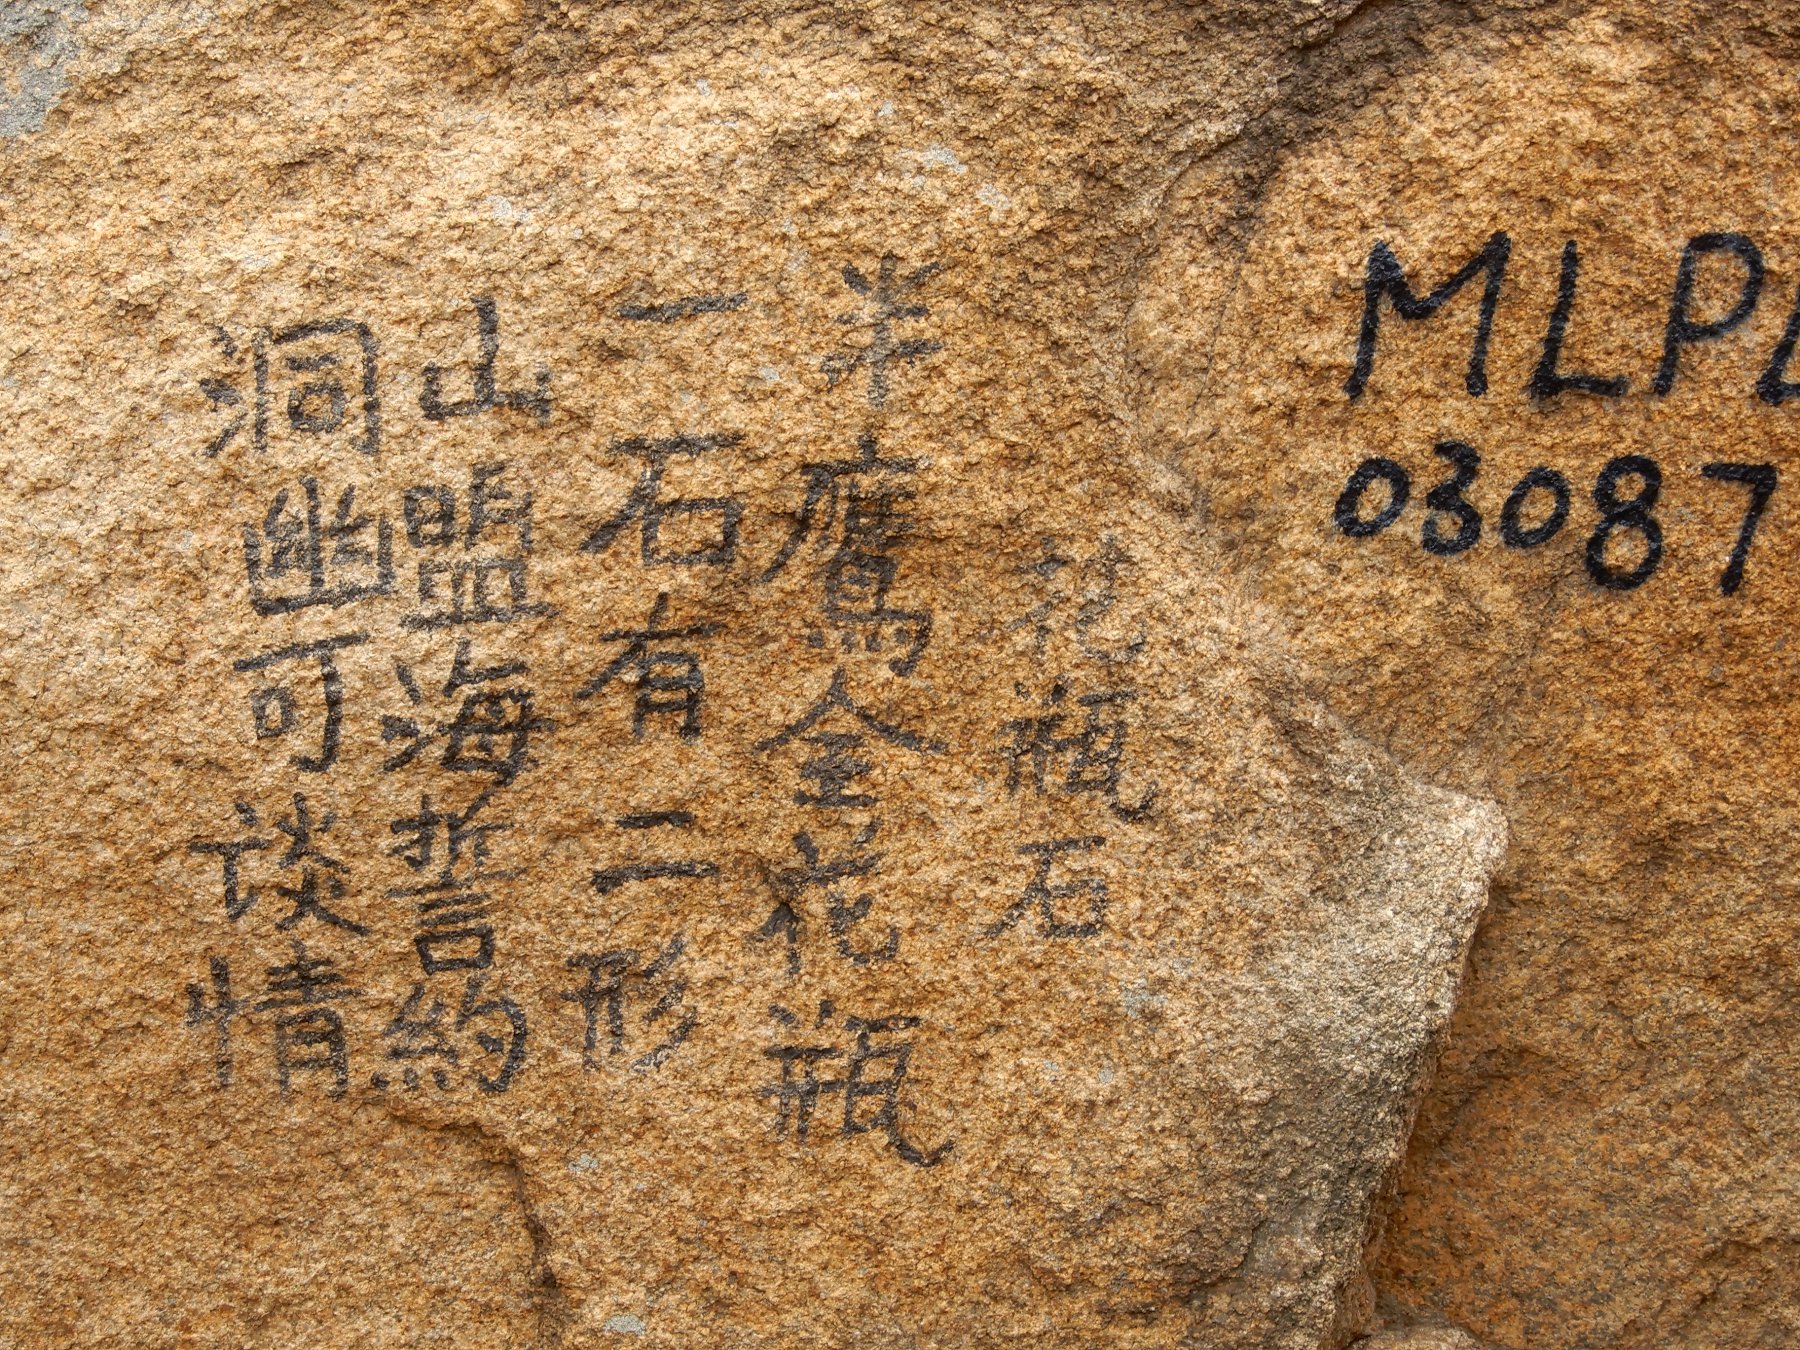 花瓶石
半鷹全花瓶
一石有二形
山盟海誓約
洞幽可谈情
03087